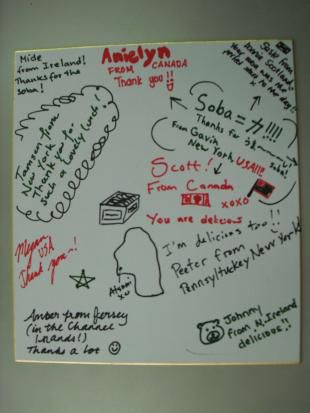 Mide
from Ireland!
Thanks for the
soba!
Anielyn
FROM CANADA
Thank you!!
from Scotland
Tamsan from
New York
Thank you for
such a Lovely lunch!
Soba = 力!!!!
Thanks for
soba!
From Gavin
New York USA!!!
Scott!
From Canada
xoxo
You are delicious
I'm delicious too!!
Peeter from
Pennsyltuckey New York
Megan
USA
Thank you~!
Alyson
xo
Amber from Jersey
(in the Channel
Islands!)
Thanks a lot
Johnny
from N. Ireland
delicious!!